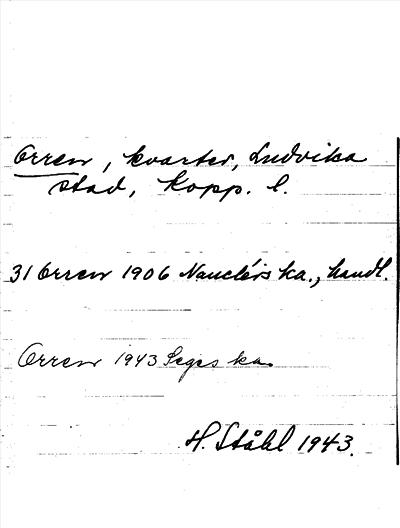 Orren, kvarter, Ludvika
stad, Kopp. l.
31 Orren 1906 Nauclérs ka., handl.
Orren 1943 Seges ka.
H. Ståhl 1943.